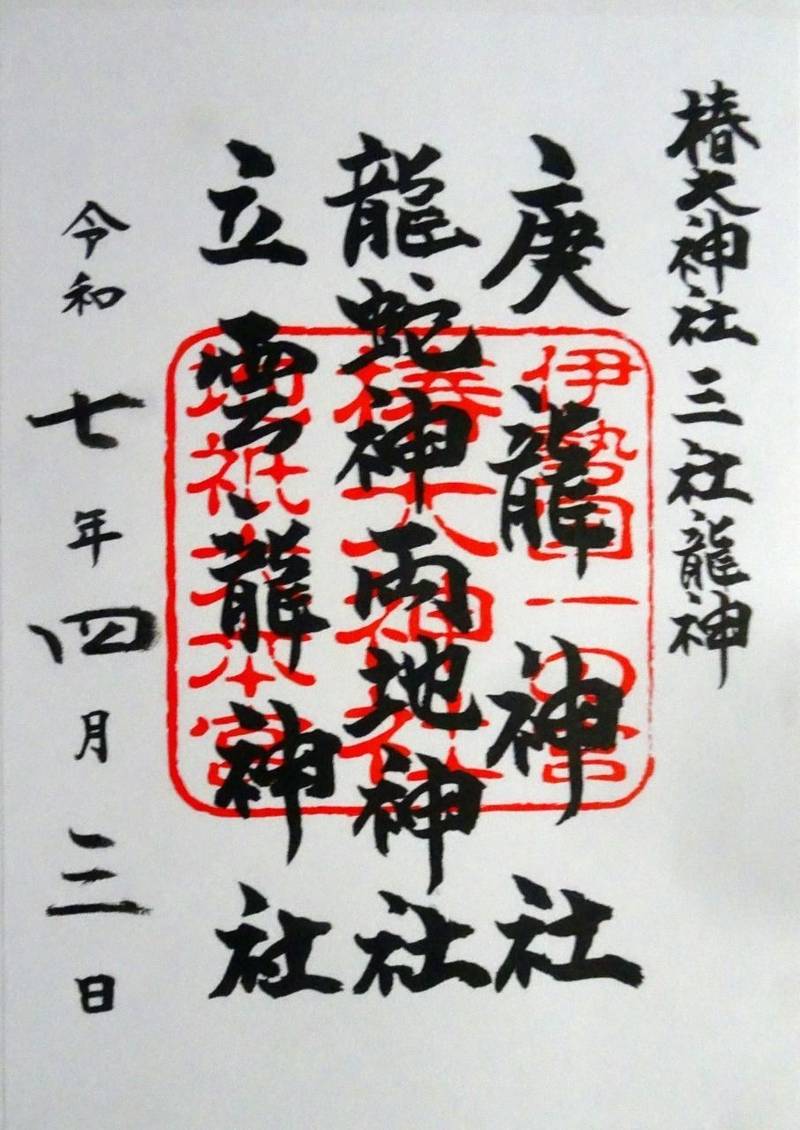 椿大神社 三社龍神
庚龍神社
龍蛇神両地神社
立雲龍神社
令和七年四月三日
伊勢国一の宮
椿大神社
地祇大本宮